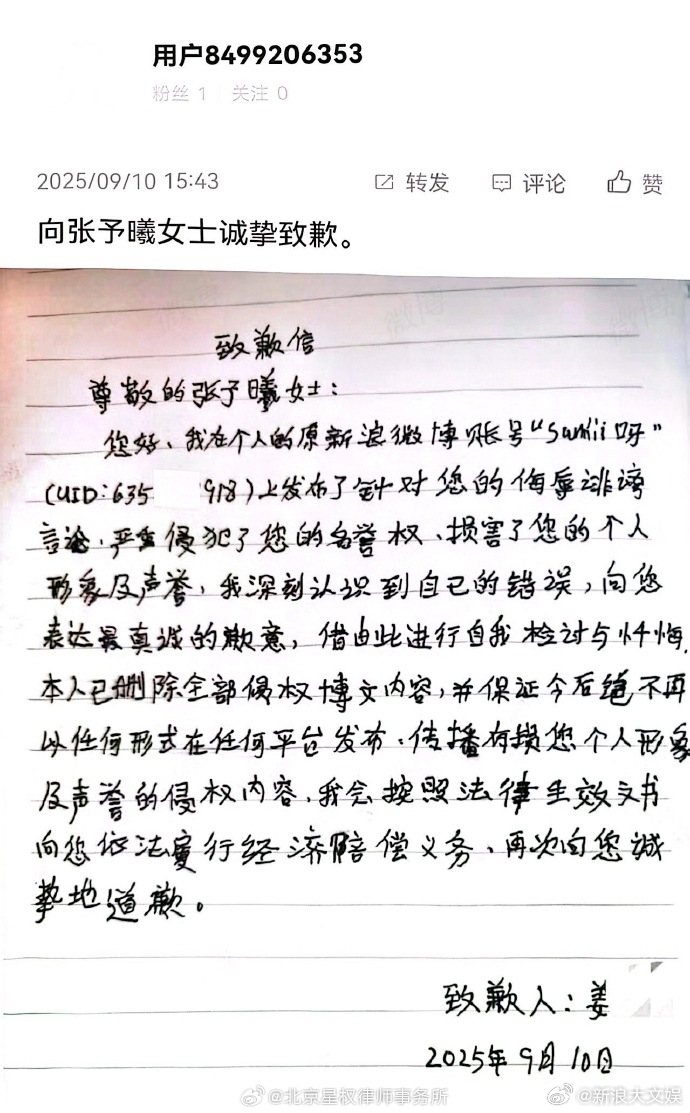 用户8499206353
粉丝 1 关注 0
2025/09/10 15:43 转发 评论 赞
向张予曦女士诚挚致歉。
致歉信
尊敬的张予曦女士：
您好、我在个人的原新浪微博账号“Sunkii呀”
(UID:635 918)上发布了针对您的侮辱诽谤
言论，严重侵犯了您的名誉权、损害了您的个人
形象及声誉，我深刻认识到自己的错误，向您
表达最真诚的歉意，借由此进行自我检讨与忏悔，
本人已删除全部侵权博文内容，并保证今后绝不再
以任何形式在任何平台发布、传播有损您个人形象
及声誉的侵权内容，我会按照法律生效文书
向您依法履行经济赔偿义务、再次向您诚
挚地道歉。
致歉人：姜
2025年9月10日
@北京星权律师事务所
@新浪大文娱